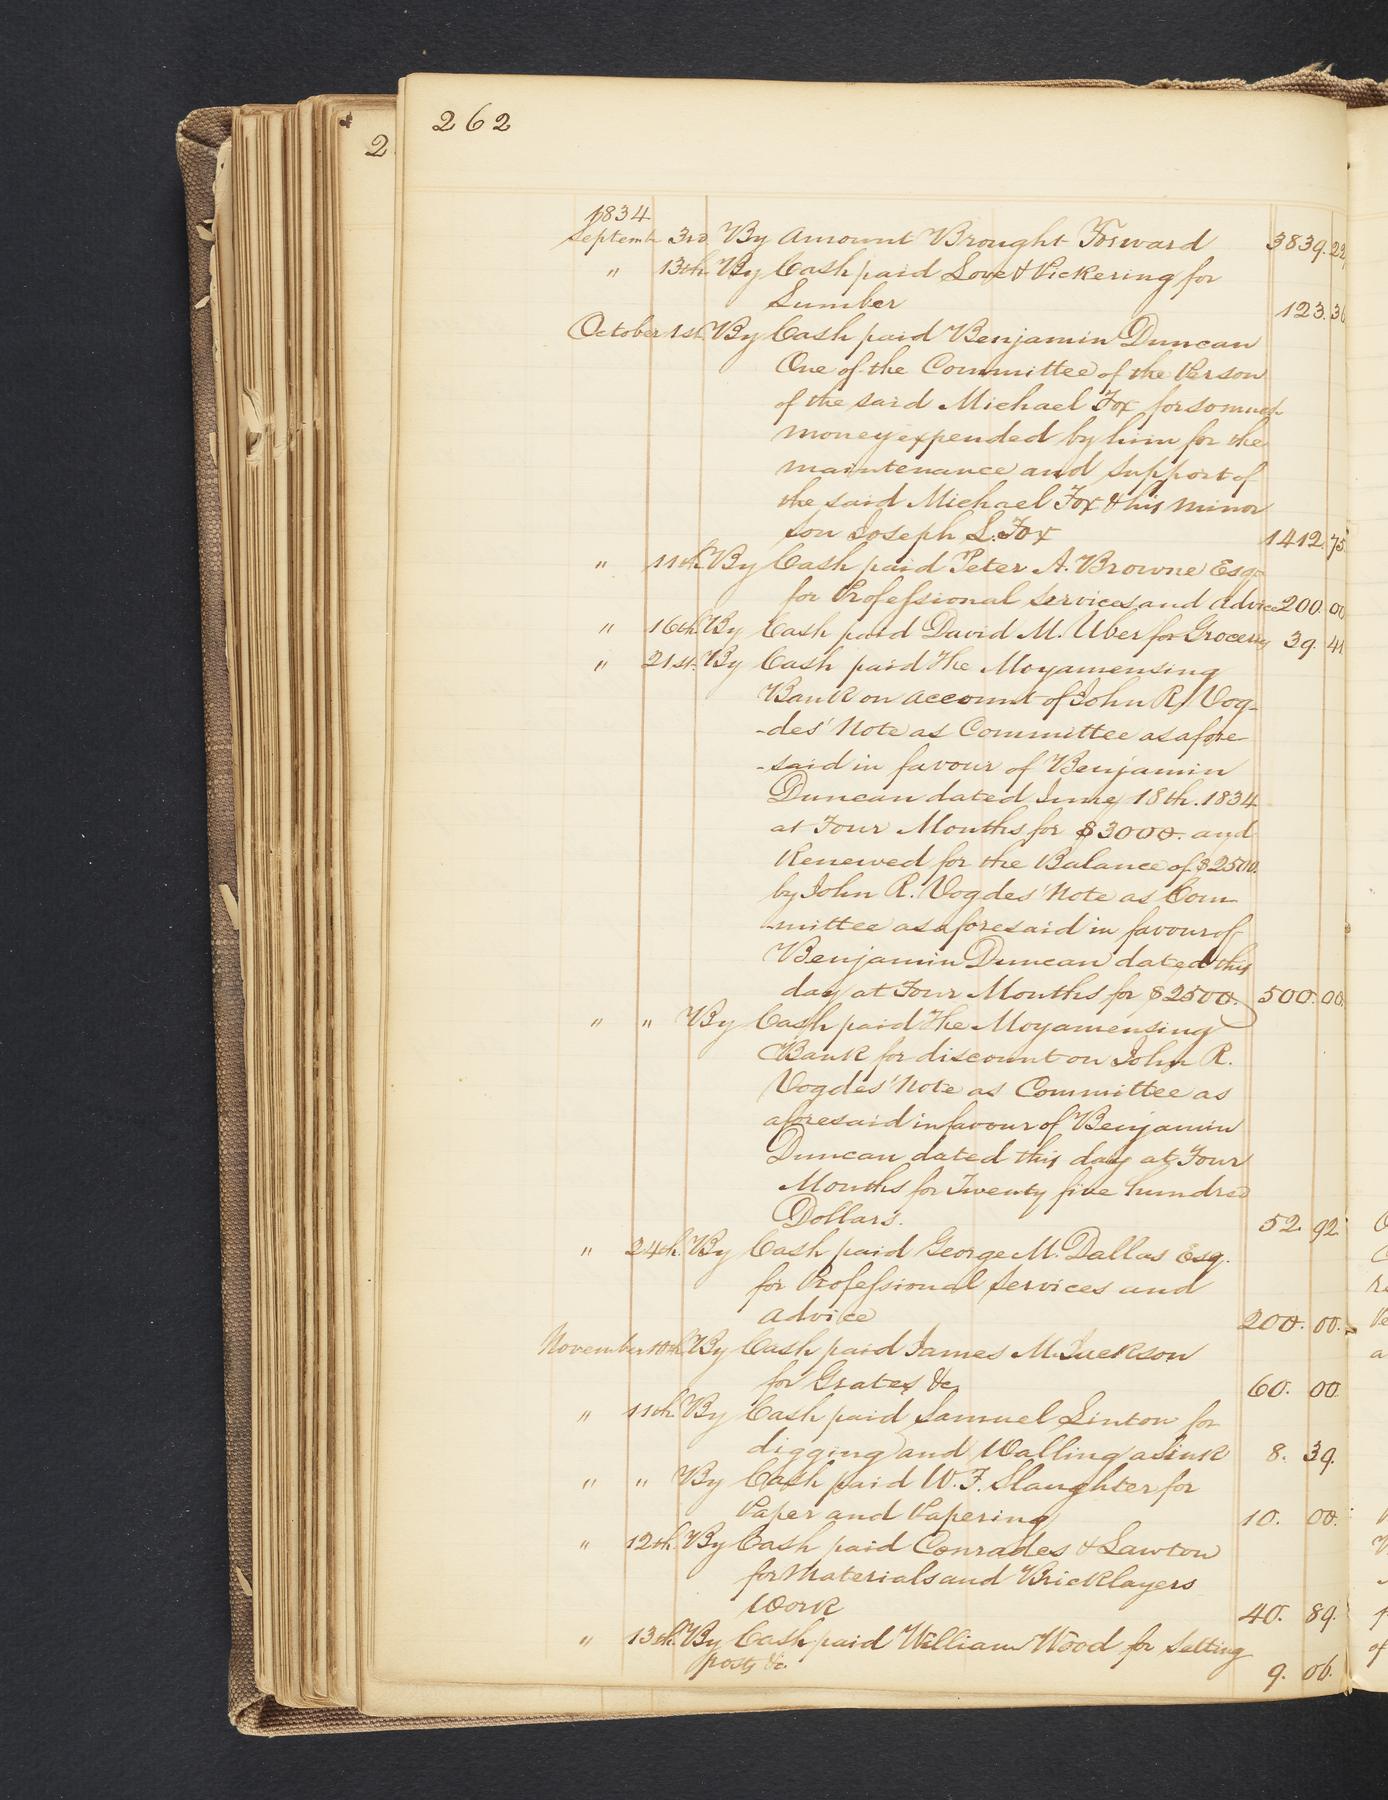 262
2
1834
Septemb 3rd. By Amount Brought Forward 3839. 22
" 13th. By Cash paid Love & Pickering for
Lumber 123. 36
October 1st. By Cash paid Benjamin Duncan
One of the Committee of the Person
of the said Michael Fox for so much
money expended by him for the
maintenance and support of
the said Michael Fox & his minor
son Joseph L. Fox 1412. 75
" 11th. By Cash paid Peter A. Browne Esqr
for Professional services and Advice 200. 00
" 16th. By Cash paid David M. Uber for Grocery 39. 41
" 21st. By Cash paid The Moyamensing
Bank on account of John R. Vog-
-des' Note as Committee as afore-
-said in favour of Benjamin
Duncan dated June 18th. 1834
at Four Months for $3000. and
Renewed for the Balance of $2500.
by John R. Vogdes' Note as Com-
-mittee as aforesaid in favour of
Benjamin Duncan dated this
day at Four Months for $2500. 500. 00.
" " By Cash paid The Moyamensing
Bank for discount on John R.
Vogdes' Note as Committee as
aforesaid in favour of Benjamin
Duncan dated this day at Four
Months for Twenty five hundred
Dollars. 52. 92.
" 24th. By Cash paid George M. Dallas Esq.
for Professional Services and
Advice 200. 00.
November 10th. By Cash paid James M. Jackson
for Grates &c. 60. 00
" 11th. By Cash paid Samuel Linton for
digging and Walling a Sink 8. 39.
" " By Cash paid W. F. Slaughter for
Paper and Papering 10. 00.
" 12th. By Cash paid Conrades & Lawton
for Materials and Bricklayers
Work 40. 89.
" 13th. By Cash paid William Wood for Setting
posts &c. 9. 06.